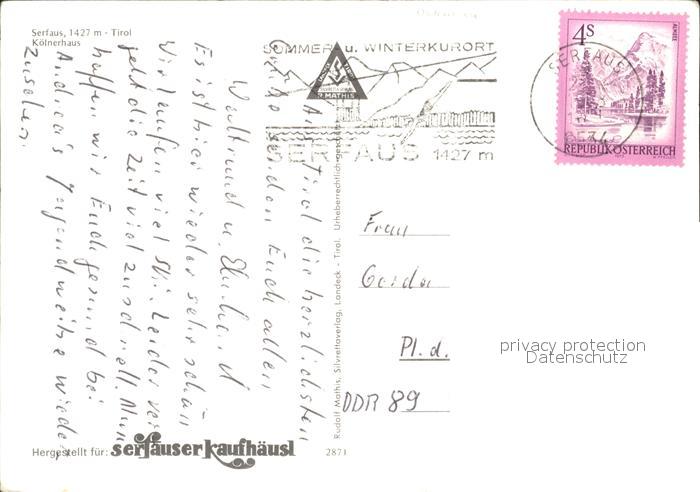 Serfaus, 1427 m - Tirol
Kölnerhaus
SOMMER u. WINTERKURORT
SERFAUS 1427 m
R. MATHIS
4S
ALMSEE
REPUBLIK ÖSTERREICH
SERFAUS
Aus Tirol die herzlichsten
Grüße senden Euch allen
Waltraud u. Ekkehard
Es ist hier wieder sehr schön
Wir laufen viel Ski. Leider ver
geht die Zeit viel zu schnell. Nun
hoffen wir Euch gesund bei
Andrea's Jugendweihe wieder
zusehen.
Frau
Gerda
Pl. d.
DDR 89
privacy protection
Datenschutz
Rudolf Mathis, Silvrettaverlag, Landeck - Tirol. Urheberrechtlich
Hergestellt für: serfauser kaufhäusl
2871